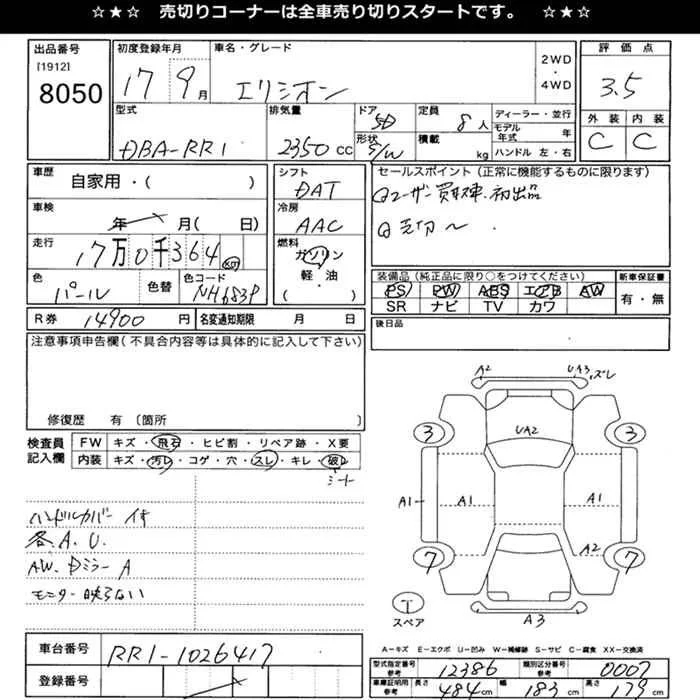 ☆★☆ 売切りコーナーは全車売り切りスタートです。 ☆★☆
出品番号 初度登録年月 車名・グレード 2WD・4WD 評価点
[1912]
8050 17 9月 エリシオン 3.5
型式 排気量 ドア 5D 定員 8人 ディーラー・並行 外装 内装
DBA-RR1 2350cc 形状 S/W 積載 kg モデル年式 年 C C
ハンドル 左・右
車歴 自家用・( ) シフト DAT セールスポイント(正常に機能するものに限ります)
車検 年 月( 日) 冷房 AAC Qユーザー買取車・初出品
走行 17万0千364 km 燃料 ガソリン Q売切〜
軽・油
( )
色 パール 色替 色コード NH683P 装備品(純正品に限り○をつけてください) 新車保証書
PS PW ABS エアB AW 有・無
SR ナビ TV カワ
R券 14900円 名変通知期限 月 日 後日品
注意事項申告欄(不具合内容等は具体的に記入して下さい)
修復歴 有 〔箇所 〕
検査員記入欄 FW キズ・飛石・ヒビ割・リペア跡・X要
内装 キズ・汚レ・コゲ・穴・スレ・キレ・破レ
シート
ハンドルカバー付
各A.U.
AW.Dミラー A
モニター映らない
A2 UA3 ズレ
3 UA2 3
A1 A1 A1 A1
7 A2 7
T
スペア
A3
A-キズ E-エクボ U-凹み W-補修跡 S-サビ C-腐食 XX-交換済
車台番号 RR1-1026417
登録番号
型式指定番号 参考 12386 類別区分番号 参考 0007
車庫証明用 参考 長さ 484cm 幅 183cm 高さ 179cm